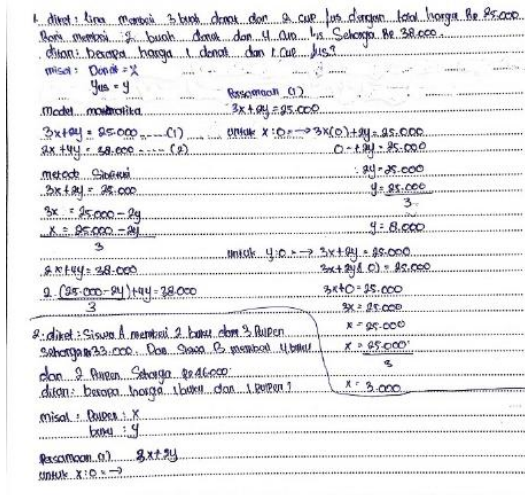 1. diket: Lina membeli 3 buah donat dan 2 cup jus dengan total harga Rp 25.000
Roni membeli 2 buah donat dan 4 cup jus Seharga Rp 38.000.
ditan: berapa harga 1 donat dan 1 cup jus?
misal: Donat = x
Jus = y
Model matematika
3x+2y = 25.000 .... (1)
2x+4y = 38.000 .... (2)
metode
3x+2y = 25.000
3x = 25.000 - 2y
x = 25.000 - 2y
3
2x+4y = 38.000
2 (25.000-2y)+4y = 38.000
3
Persamaan (1)
3x+2y = 25.000
untuk x:0 = → 3x(0)+2y = 25.000
0+2y = 25.000
: 2y = 25.000
y = 25.000
3
y = 8.000
untuk y:0 = → 3x+2y = 25.000
3x+2y(0) = 25.000
3x+0 = 25.000
3x = 25.000
x = 25.000
x = 25.000
3
x = 3.000
2. diket: Siswa A membeli 2 buku dan 3 Pulpen
Seharga 33.000. Dan Siswa B membeli 4 buku
dan 2 Pulpen Seharga Rp 46.000
ditan: berapa harga 1 buku dan 1 Pulpen?
misal: Pulpen : x
buku : y
Persamaan (1) 3x+2y
untuk x:0 = →